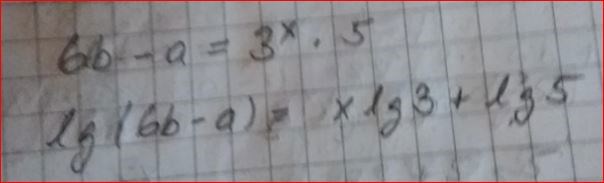 6b - a = 3ˣ · 5
lg (6b - a) = x lg 3 + lg 5